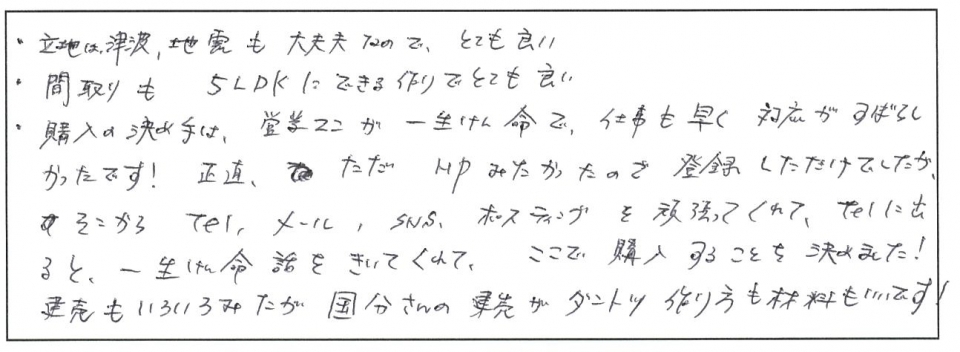 ・立地は、津波、地震も 大丈夫なので、とても良い
・間取りも 5LDKにできる作りでとても良い
・購入の決め手は、営業マンが 一生けん命で、仕事も早く 対応がすばらし
かったです! 正直、ただ HPみたかったので 登録しただけでしたが、
そこから Tel、メール、SNS、ポスティングを頑張ってくれて、Telに出
ると、一生けん命 話をきいてくれて、ここで購入することを決めました!
建売もいろいろみたが 国分さんの建売がダントツ 作り方も材料もいいです!